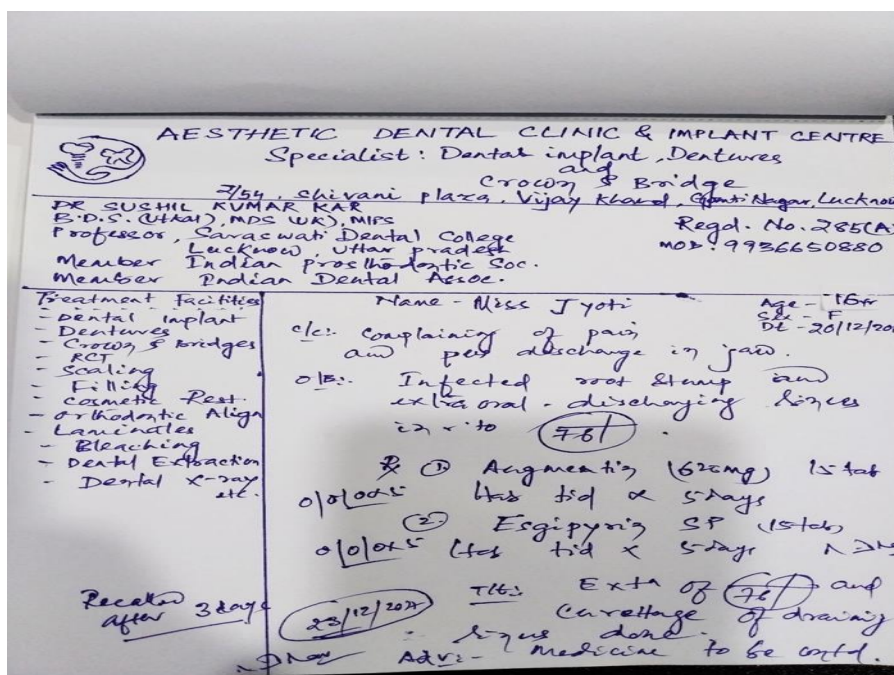 AESTHETIC DENTAL CLINIC & IMPLANT CENTRE
Specialist: Dental implant, Dentures
and
Crown & Bridge
2/54, Shivani plaza, Vijay Khand, Gomti Nagar, Lucknow
DR SUSHIL KUMAR KAR
B.D.S. (Utkal), MDS (UK), MIPS
Professor, Saraswati Dental College
Lucknow, Uttar pradesh
Member Indian Prosthodontic Soc.
Member Indian Dental Assoc.
Regd. No. 285(A)
MOB: 9936650880
Treatment Facilities
- Dental implant
- Dentures
- Crown & Bridges
- RCT
- Scaling
- Filling
- Cosmetic Rest.
- Orthodontic Align
- Laminates
- Bleaching
- Dental Extraction
- Dental X-ray
etc.
Recalled
after 3 days
Name - Miss Jyoti
Age - 16yr
Sex - F
Dt - 20/12/20
c/c:- Complaining of pain
and pus discharge in jaw.
O/E:- Infected root stump and
extra oral discharging sinus
in r to 76
Rx ① Augmentin (625mg) 15 tab
1tab tid x 5days
② (15 tab)
1tab tid x 5days
23/12/20
Extn of 76 and
Curettage of draining
sinus done.
Adv:- Medicine to be contd.